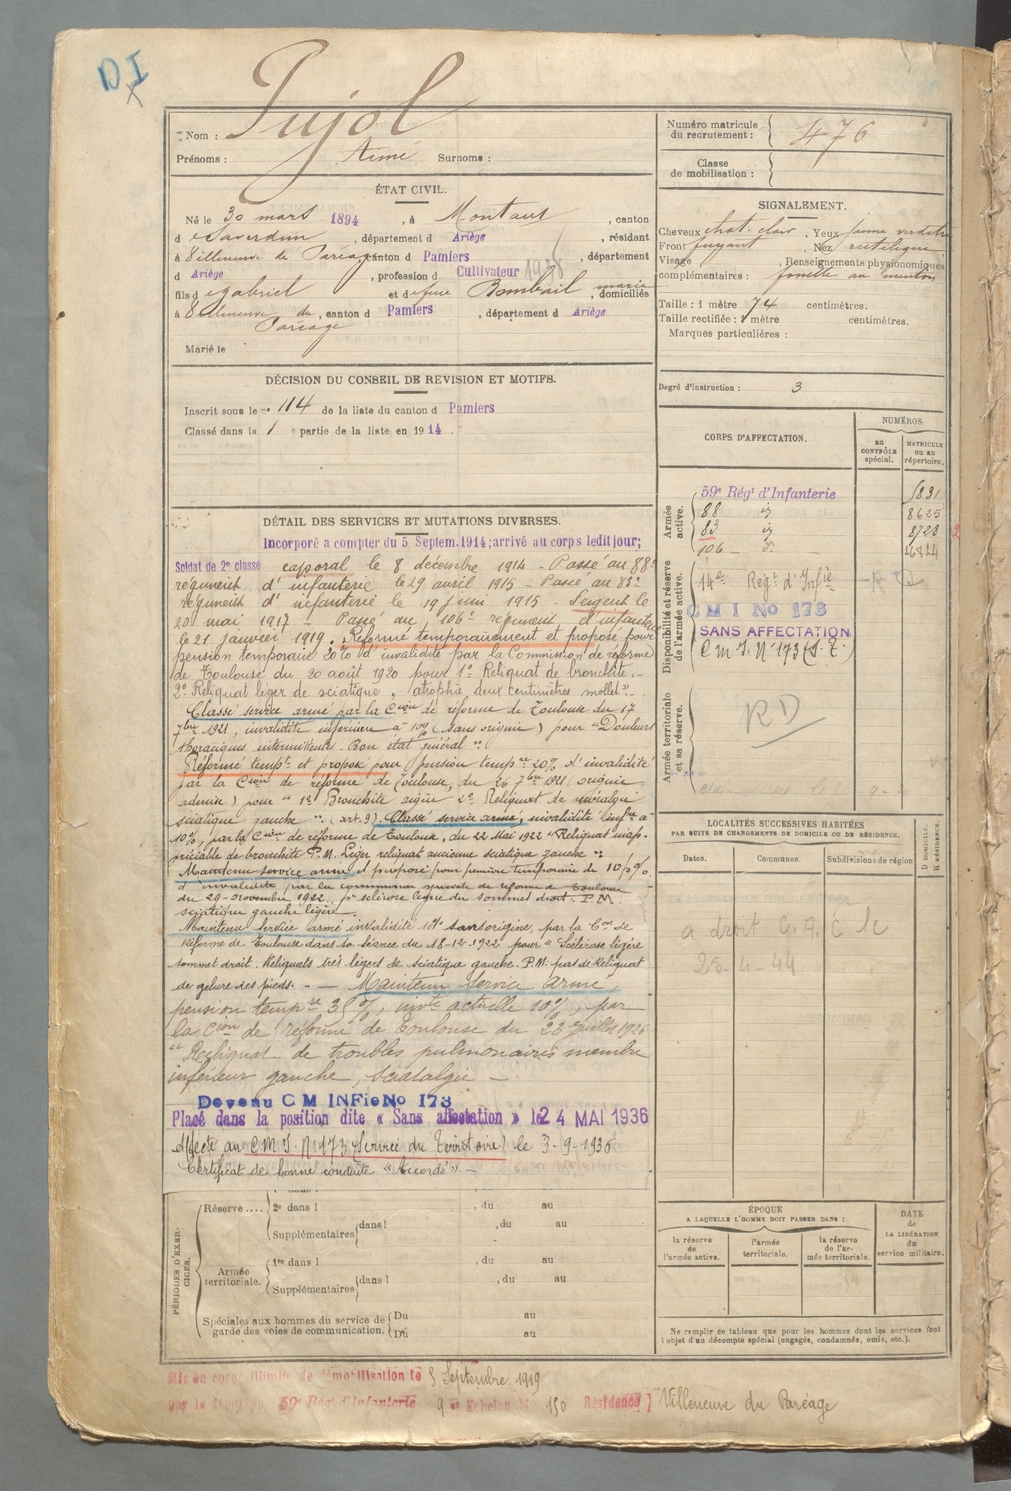 DI
Nom : Pujol
Prénoms : Aimé Surnoms :
ÉTAT CIVIL.
Né le 30 mars 1894, à Montaut, canton
d e Saverdun, département d Ariège, résidant
à Villeneuve du Paréage canton d Pamiers, département
d Ariège, profession d Cultivateur 1938
fils d e Gabriel et d e feue Bombail marie, domiciliés
à Villeneuve du, canton d Pamiers, département d Ariège
Paréage
Marié le
DÉCISION DU CONSEIL DE REVISION ET MOTIFS.
Inscrit sous le n° 114 de la liste du canton d Pamiers
Classé dans la 1 e partie de la liste en 1914.
DÉTAIL DES SERVICES ET MUTATIONS DIVERSES.
Incorporé a compter du 5 Septem. 1914; arrivé au corps ledit jour;
Soldat de 2e classe caporal le 8 décembre 1914 - Passé au 88e
régiment d'infanterie le 29 avril 1915 - Passé au 83e
régiment d'infanterie le 19 juin 1915 - Sergent le
20 mai 1917 - Passé au 106e régiment d'infanterie
le 21 janvier 1919. Réformé temporairement et proposé pour
pension temporaire 20% d'invalidité par la Commission de réforme
de Toulouse du 20 août 1920 pour 1° Reliquat de bronchite.-
2° Reliquat léger de sciatique, atrophie deux centimètres mollet".-
Classé service armé par la Cion de réforme de Toulouse du 17
7bre 1921, invalidité inférieure à 10% (sans origine) pour "Douleurs
thoraciques intermittentes. Bon état général".
Réformé tempt et proposé pour pension tempre 20% d'invalidité
par la Cion de réforme de Toulouse, du 26 7bre 1921 (origine
admise) pour "1° Bronchite 2° Reliquat de névralgie
sciatique gauche". (art. 9). Classé service armé, invalidité infre à
10%, par la Cion de réforme de Toulouse, du 22 Mai 1922 "Reliquat inap-
préciable de bronchite P.M. Léger reliquat ancienne sciatique gauche".
Maintenu service armé et proposé pour pension temporaire de 10%
d'invalidité par la commission spéciale de réforme de Toulouse
du 29 novembre 1922, pr sclérose légère du sommet droit. P.M.
sciatique gauche légère.
Maintenu Service armé invalidité 10% sans origine, par la Con de
Réforme de Toulouse dans sa séance du 18-12-1922 pour "Sclérose légère
sommet droit. Reliquats très légers de sciatique gauche. P.M. pas de Reliquat
de gelure des pieds. - Maintenu Service armé,
pension tempre 35%, invté actuelle 10%, par
la Cion de réforme de Toulouse du 23 juillet
"Reliquat de troubles pulmonaires membre
inférieur gauche, sciatalgie -
Devenu C M INFie No 173
Placé dans la position dite « Sans affectation » le 24 MAI 1936
Affecté au C M I. N° 173 (Service du Territoire) le 3-9-1936
Certificat de bonne conduite "Accordé".-
PÉRIODES D'EXERCICES.
Réserve .... 2e dans l , du au
Supplémentaires dans l , du au
Armée territoriale. 1re dans l , du au
Supplémentaires dans l , du au
Spéciales aux hommes du service de garde des voies de communication. Du au
Du au
Mis en congé illimité de démobilisation le 5 Septembre 1919
par le dépôt du 59e Régt d'Infanterie 9e Echelon N° 150 Résidence Villeneuve du Paréage
Numéro matricule du recrutement : 476
Classe de mobilisation :
SIGNALEMENT.
Cheveux chat. clair, Yeux jaune verdâtre
Front fuyant, Nez rectiligne
Visage , Renseignements physionomiques
complémentaires : fossette au menton
Taille : 1 mètre 74 centimètres.
Taille rectifiée : 1 mètre centimètres.
Marques particulières :
Degré d'instruction : 3
CORPS D'AFFECTATION.
NUMÉROS
au CONTRÔLE spécial.
MATRICULE ou au répertoire.
Armée active.
59e Régt d'Infanterie 5831
88 id 8625
83 id 8728
106 - d°
Disponibilité et réserve de l'armée active.
14e Regt d'Infie
C M I No 173
SANS AFFECTATION
C M I. N° 173 (S. T.)
Armée territoriale et sa réserve.
RD
LOCALITÉS SUCCESSIVES HABITÉES
PAR SUITE DE CHANGEMENTS DE DOMICILE OU DE RÉSIDENCE.
Dates. Communes. Subdivisions de région
D DOMICILE. R RÉSIDENCE.
a droit C.A.C
25-4-44
ÉPOQUE
A LAQUELLE L'HOMME DOIT PASSER DANS :
la réserve de l'armée active. l'armée territoriale. la réserve de l'armée territoriale.
DATE de LA LIBÉRATION du service militaire.
Ne remplir ce tableau que pour les hommes dont les services font
l'objet d'un décompte spécial (engagés, condamnés, omis, etc.).